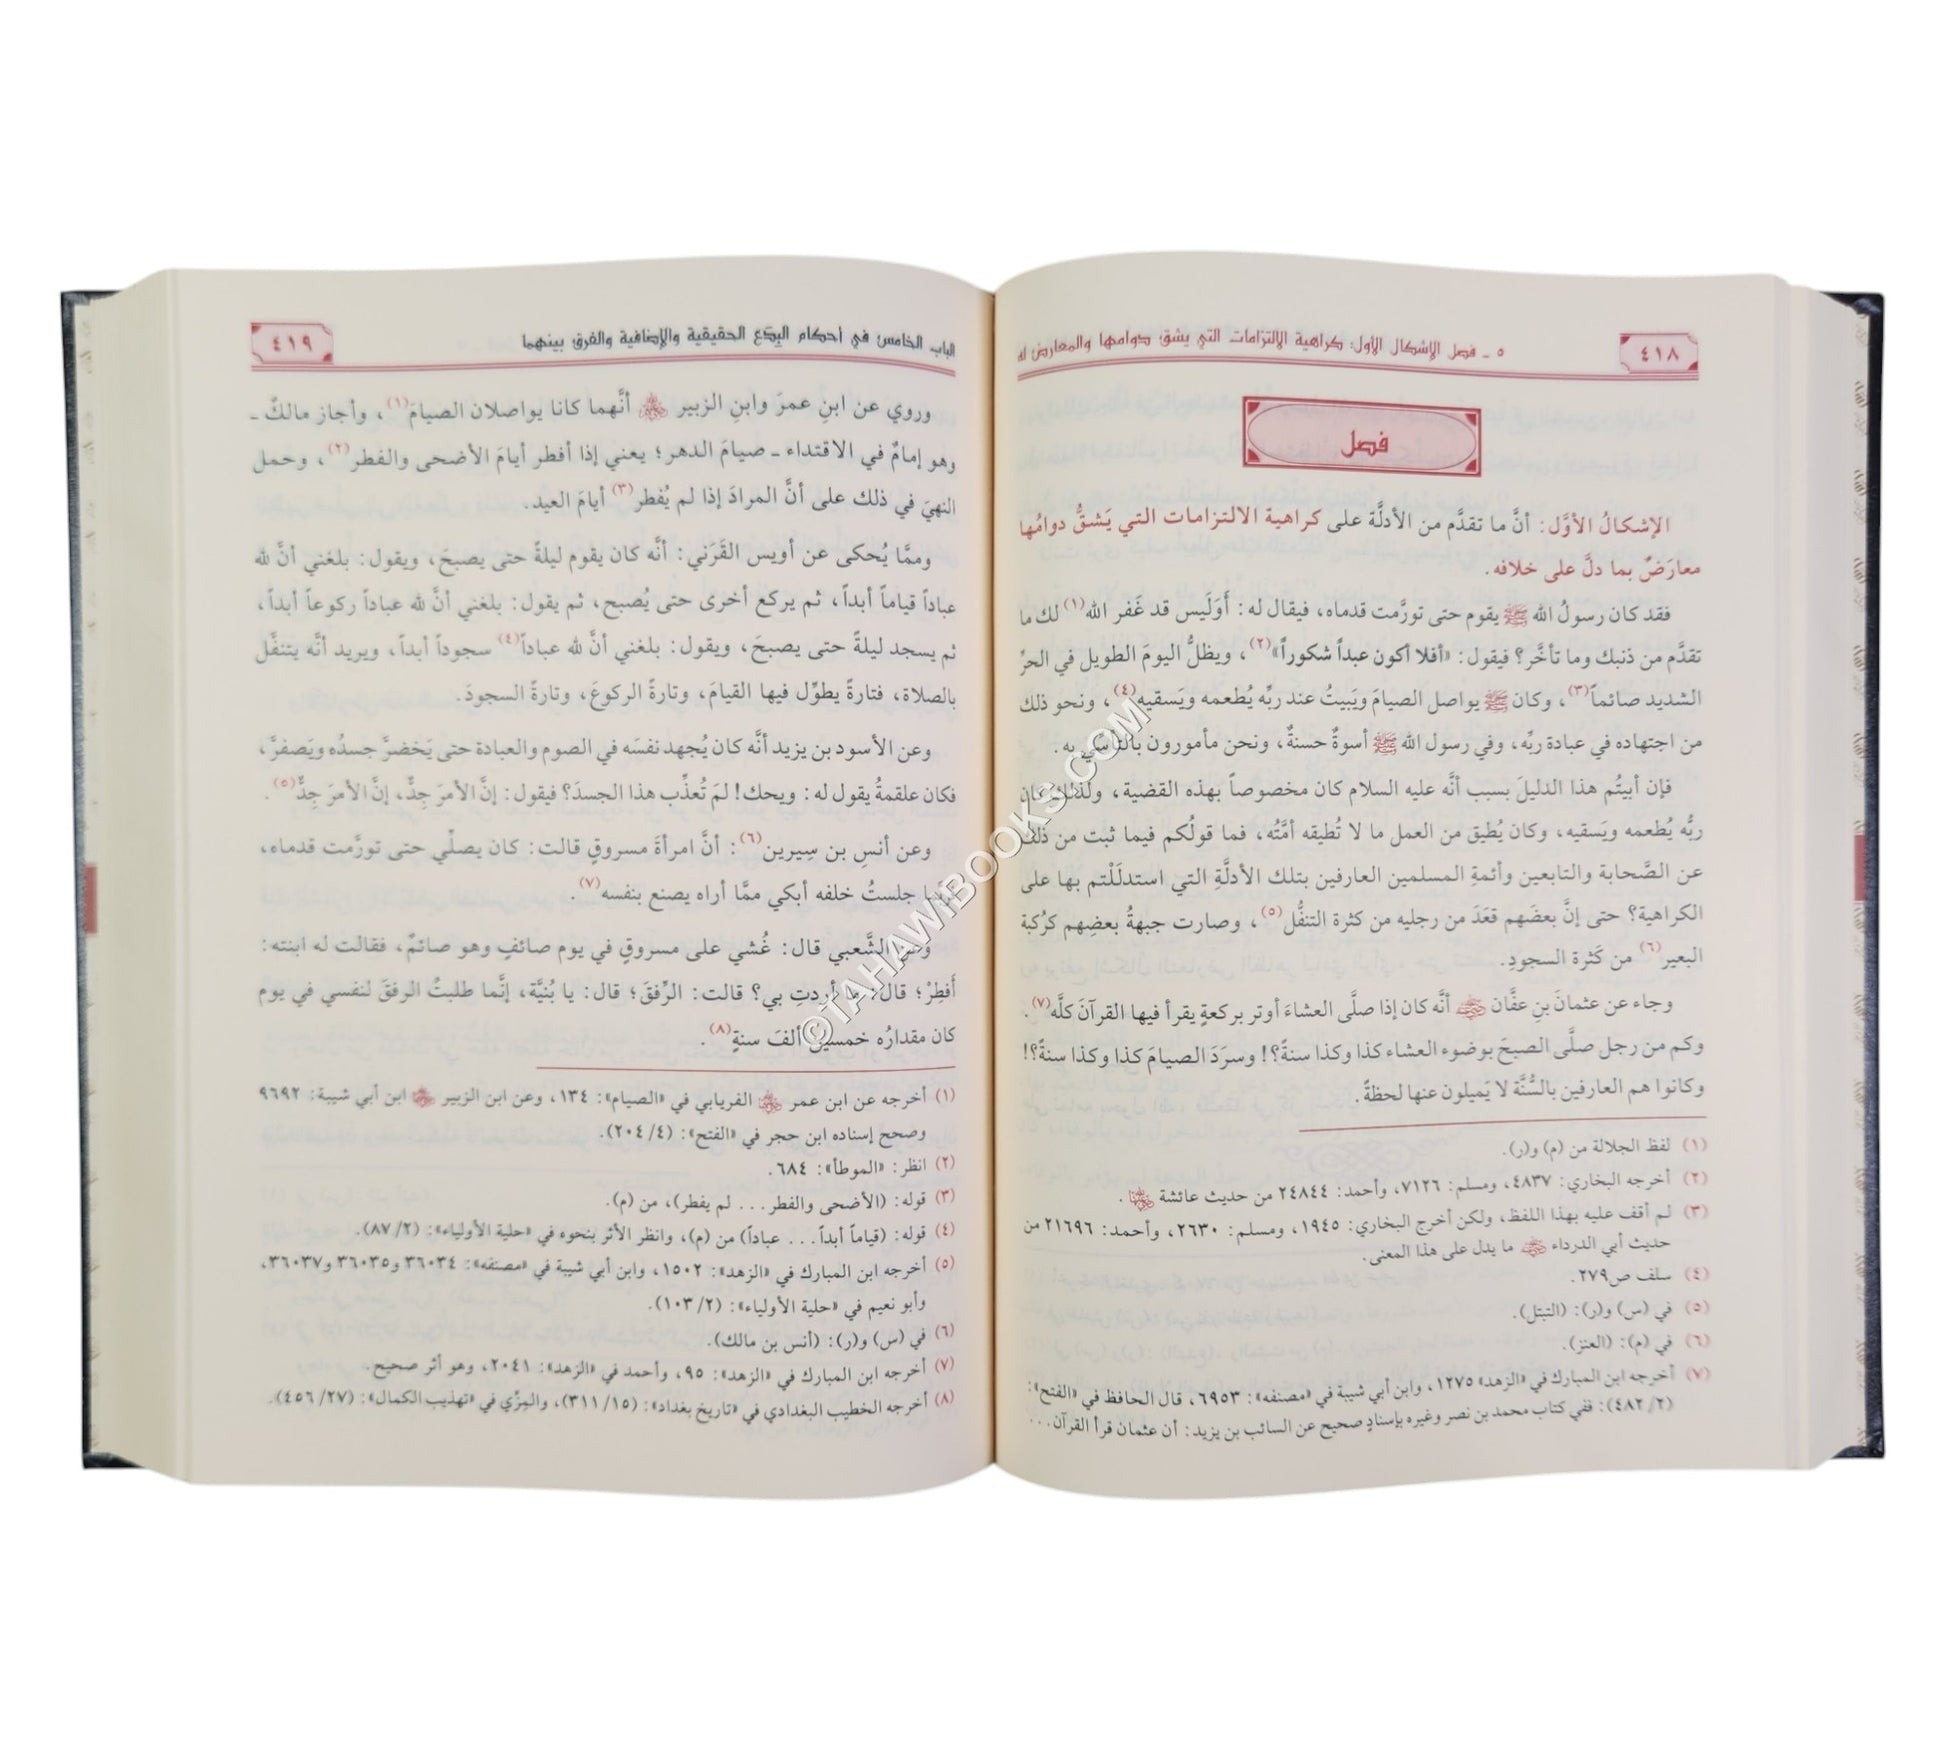 ٤١٨
٥ ـ فصل الإشكال الأول: كراهية الالتزامات التي يشق دوامها والمعارض له
فصل
الإشكالُ الأوَّل: أنَّ ما تقدَّم من الأدلَّة على كراهية الالتزامات التي يَشقُّ دوامُها
معارَضٌ بما دلَّ على خلافه.
فقد كان رسولُ الله ﷺ يقوم حتى تورَّمت قدماه، فيقال له: أَوَلَيس قد غَفر الله(١) لك ما
تقدَّم من ذنبك وما تأخَّر؟ فيقول: «أفلا أكون عبداً شكوراً»(٢)، ويظلُّ اليومَ الطويل في الحرِّ
الشديد صائماً(٣)، وكان ﷺ يواصل الصيامَ ويَبيتُ عند ربِّه يُطعمه ويَسقيه(٤)، ونحو ذلك
من اجتهاده في عبادة ربِّه، وفي رسول الله ﷺ أسوةٌ حسنةٌ، ونحن مأمورون بالتأسِّي به.
فإن أبيتُم هذا الدليلَ بسبب أنَّه عليه السلام كان مخصوصاً بهذه القضية، ولذلك كان
ربُّه يُطعمه ويَسقيه، وكان يُطيق من العمل ما لا تُطيقه أمَّتُه، فما قولُكم فيما ثبت من ذلك
عن الصَّحابة والتابعين وأئمةِ المسلمين العارفين بتلك الأدلَّةِ التي استدلَلْتم بها على
الكراهية؟ حتى إنَّ بعضَهم قعَدَ من رجليه من كثرة التنفُّل(٥)، وصارت جبهةُ بعضِهم كرُكبة
البعير(٦) من كَثرة السجودِ.
وجاء عن عثمانَ بنِ عفَّان رضي الله عنه أنَّه كان إذا صلَّى العشاءَ أوتر بركعةٍ يقرأ فيها القرآنَ كلَّه(٧).
وكم من رجل صلَّى الصبحَ بوضوء العشاء كذا وكذا سنةً؟! وسرَدَ الصيامَ كذا وكذا سنةً؟!
وكانوا هم العارفين بالسُّنَّة لا يَميلون عنها لحظةً.
(١) لفظ الجلالة من (م) و(ر).
(٢) أخرجه البخاري: ٤٨٣٧، ومسلم: ٧١٢٦، وأحمد: ٢٤٨٤٤ من حديث عائشة رضي الله عنها.
(٣) لم أقف عليه بهذا اللفظ، ولكن أخرج البخاري: ١٩٤٥، ومسلم: ٢٦٣٠، وأحمد: ٢١٦٩٦ من
حديث أبي الدرداء رضي الله عنه ما يدل على هذا المعنى.
(٤) سلف ص٢٧٩.
(٥) في (س) و(ر): (التبتل).
(٦) في (م): (العنز).
(٧) أخرجه ابن المبارك في «الزهد» ١٢٧٥، وابن أبي شيبة في «مصنفه»: ٦٩٥٣، قال الحافظ في «الفتح»:
(٢/ ٤٨٢): ففي كتاب محمد بن نصر وغيره بإسنادٍ صحيح عن السائب بن يزيد: أن عثمان قرأ القرآن...
الباب الخامس في أحكام البِدَع الحقيقية والإضافية والفرق بينهما
٤١٩
وروي عن ابنِ عمرَ وابنِ الزبير رضي الله عنهم أنَّهما كانا يواصلان الصيامَ(١)، وأجاز مالكٌ ـ
وهو إمامٌ في الاقتداء ـ صيامَ الدهر؛ يعني إذا أفطر أيامَ الأضحى والفطر(٢)، وحمل
النهيَ في ذلك على أنَّ المرادَ إذا لم يُفطر(٣) أيامَ العيد.
وممَّا يُحكى عن أويس القَرَني: أنَّه كان يقوم ليلةً حتى يصبحَ، ويقول: بلغني أنَّ لله
عباداً قياماً أبداً، ثم يركع أخرى حتى يُصبح، ثم يقول: بلغني أنَّ لله عباداً ركوعاً أبداً،
ثم يسجد ليلةً حتى يصبحَ، ويقول: بلغني أنَّ لله عباداً(٤) سجوداً أبداً، ويريد أنَّه يتنفَّل
بالصلاة، فتارةً يطوِّل فيها القيامَ، وتارةً الركوعَ، وتارةً السجودَ.
وعن الأسود بن يزيد أنَّه كان يُجهد نفسَه في الصوم والعبادة حتى يَخضرَّ جسدُه ويَصفرَّ،
فكان علقمةُ يقول له: ويحك! لمَ تُعذِّب هذا الجسدَ؟ فيقول: إنَّ الأمرَ جِدٌّ، إنَّ الأمرَ جِدٌّ(٥).
وعن أنسِ بن سِيرين(٦): أنَّ امرأةَ مسروقٍ قالت: كان يصلِّي حتى تورَّمت قدماه،
فربَّما جلستُ خلفه أبكي ممَّا أراه يصنع بنفسه(٧).
وعن الشَّعبي قال: غُشي على مسروقٍ في يوم صائفٍ وهو صائمٌ، فقالت له ابنته:
أَفطِرْ؛ قال: ما أردتِ بي؟ قالت: الرِّفقَ؛ قال: يا بُنيَّة، إنَّما طلبتُ الرفقَ لنفسي في يوم
كان مقدارُه خمسين ألفَ سنةٍ(٨).
(١) أخرجه عن ابن عمر رضي الله عنهما الفريابي في «الصيام»: ١٣٤، وعن ابن الزبير رضي الله عنهما ابن أبي شيبة: ٩٦٩٢
وصحح إسناده ابن حجر في «الفتح»: (٤/ ٢٠٤).
(٢) انظر: «الموطأ»: ٦٨٤.
(٣) قوله: (الأضحى والفطر... لم يفطر)، من (م).
(٤) قوله: (قياماً أبداً... عباداً) من (م)، وانظر الأثر بنحوه في «حلية الأولياء»: (٢/ ٨٧).
(٥) أخرجه ابن المبارك في «الزهد»: ١٥٠٢، وابن أبي شيبة في «مصنفه»: ٣٦٠٣٤ و٣٦٠٣٥ و٣٦٠٣٧،
وأبو نعيم في «حلية الأولياء»: (٢/ ١٠٣).
(٦) في (س) و(ر): (أنس بن مالك).
(٧) أخرجه ابن المبارك في «الزهد»: ٩٥، وأحمد في «الزهد»: ٢٠٤١، وهو أثر صحيح.
(٨) أخرجه الخطيب البغدادي في «تاريخ بغداد»: (١٥/ ٣١١)، والمِزِّي في «تهذيب الكمال»: (٢٧/ ٤٥٦).
©TAHAWIBOOKS.COM